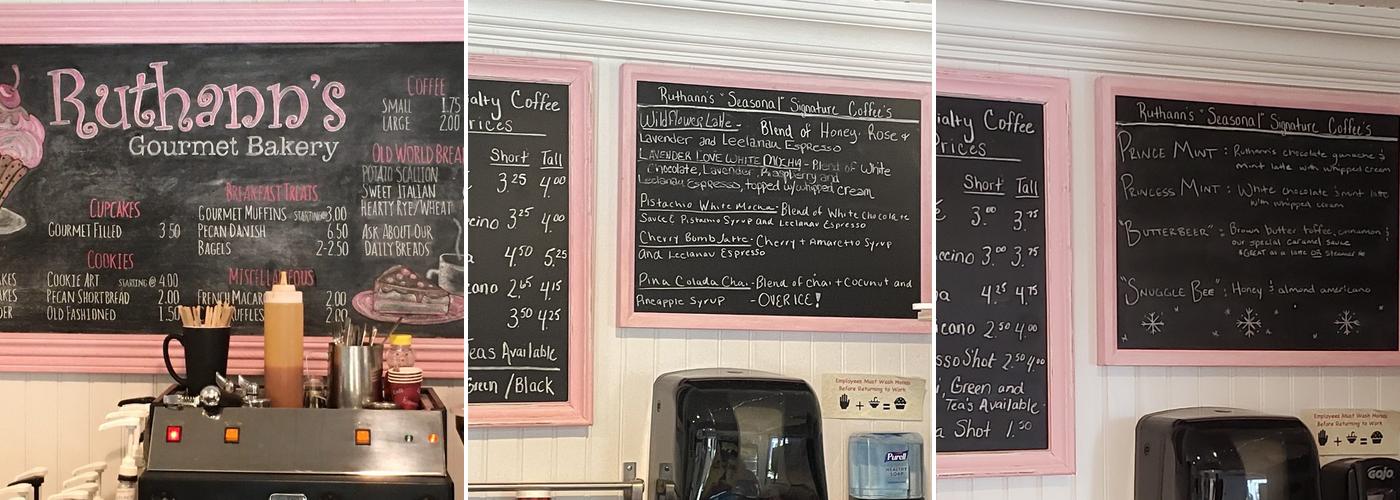 Ruthann's
Gourmet Bakery
COFFEE
SMALL 1.75
LARGE 2.00
OLD WORLD BREA
POTATO SCALLION
SWEET ITALIAN
HEARTY RYE/WHEAT
ASK ABOUT OUR
DAILY BREADS
BREAKFAST TREATS
GOURMET MUFFINS STARTING@ 3.00
PECAN DANISH 6.50
BAGELS 2-2.50
CUPCAKES
GOURMET FILLED 3.50
COOKIES
COOKIE ART STARTING @ 4.00
PECAN SHORTBREAD 2.00
OLD FASHIONED 1.50
MISCELLANEOUS
FRENCH MACAR 2.00
UFFLES 2.00
AKES
AKES
DER
alty Coffee
rices
Short Tall
3.25 4.00
cino 3.25 4.00
a 4.50 5.25
cano 2.65 4.15
3.50 4.25
Teas Available
Green / Black
Ruthann's "Seasonal" Signature Coffee's
Wildflower Latte - Blend of Honey, Rose &
Lavender and Leelanau Espresso
LAVENDER LOVE WHITE MOCHA - Blend of White
Chocolate, Lavender, Raspberry and
Leelanau Espresso, topped w/whipped cream
Pistachio White Mocha - Blend of White Chocolate
Sauce, Pistachio Syrup and Leelanav Espresso
Cherry Bomb Latte - Cherry + Amaretto Syrup
and Leelanav Espresso
Pina Colada Chai - Blend of chai + coconut and
Pineapple Syrup - OVER ICE!
Employees Must Wash Hands
Before Returning to Work
+ =
Purell
ialty Coffee
Prices
Short Tall
3.00 3.75
ccino 3.00 3.75
a 4.25 4.75
icano 2.50 4.00
sso Shot 2.50 4.00
i, Green and
Tea's Available
a Shot 1.50
Ruthann's "Seasonal" Signature Coffee's
PRINCE MINT : Ruthann's chocolate ganache &
mint latte with whipped cream
PRINCESS MINT : White chocolate & mint latte
with whipped cream
"BUTTERBEER" : Brown butter toffee, cinnamon &
our special caramel sauce
*GREAT as a latte OR steamer
"SNUGGLE BEE" : Honey & almond americano
Employees Must Wash Hands
Before Returning to Work
+ =
GOJO